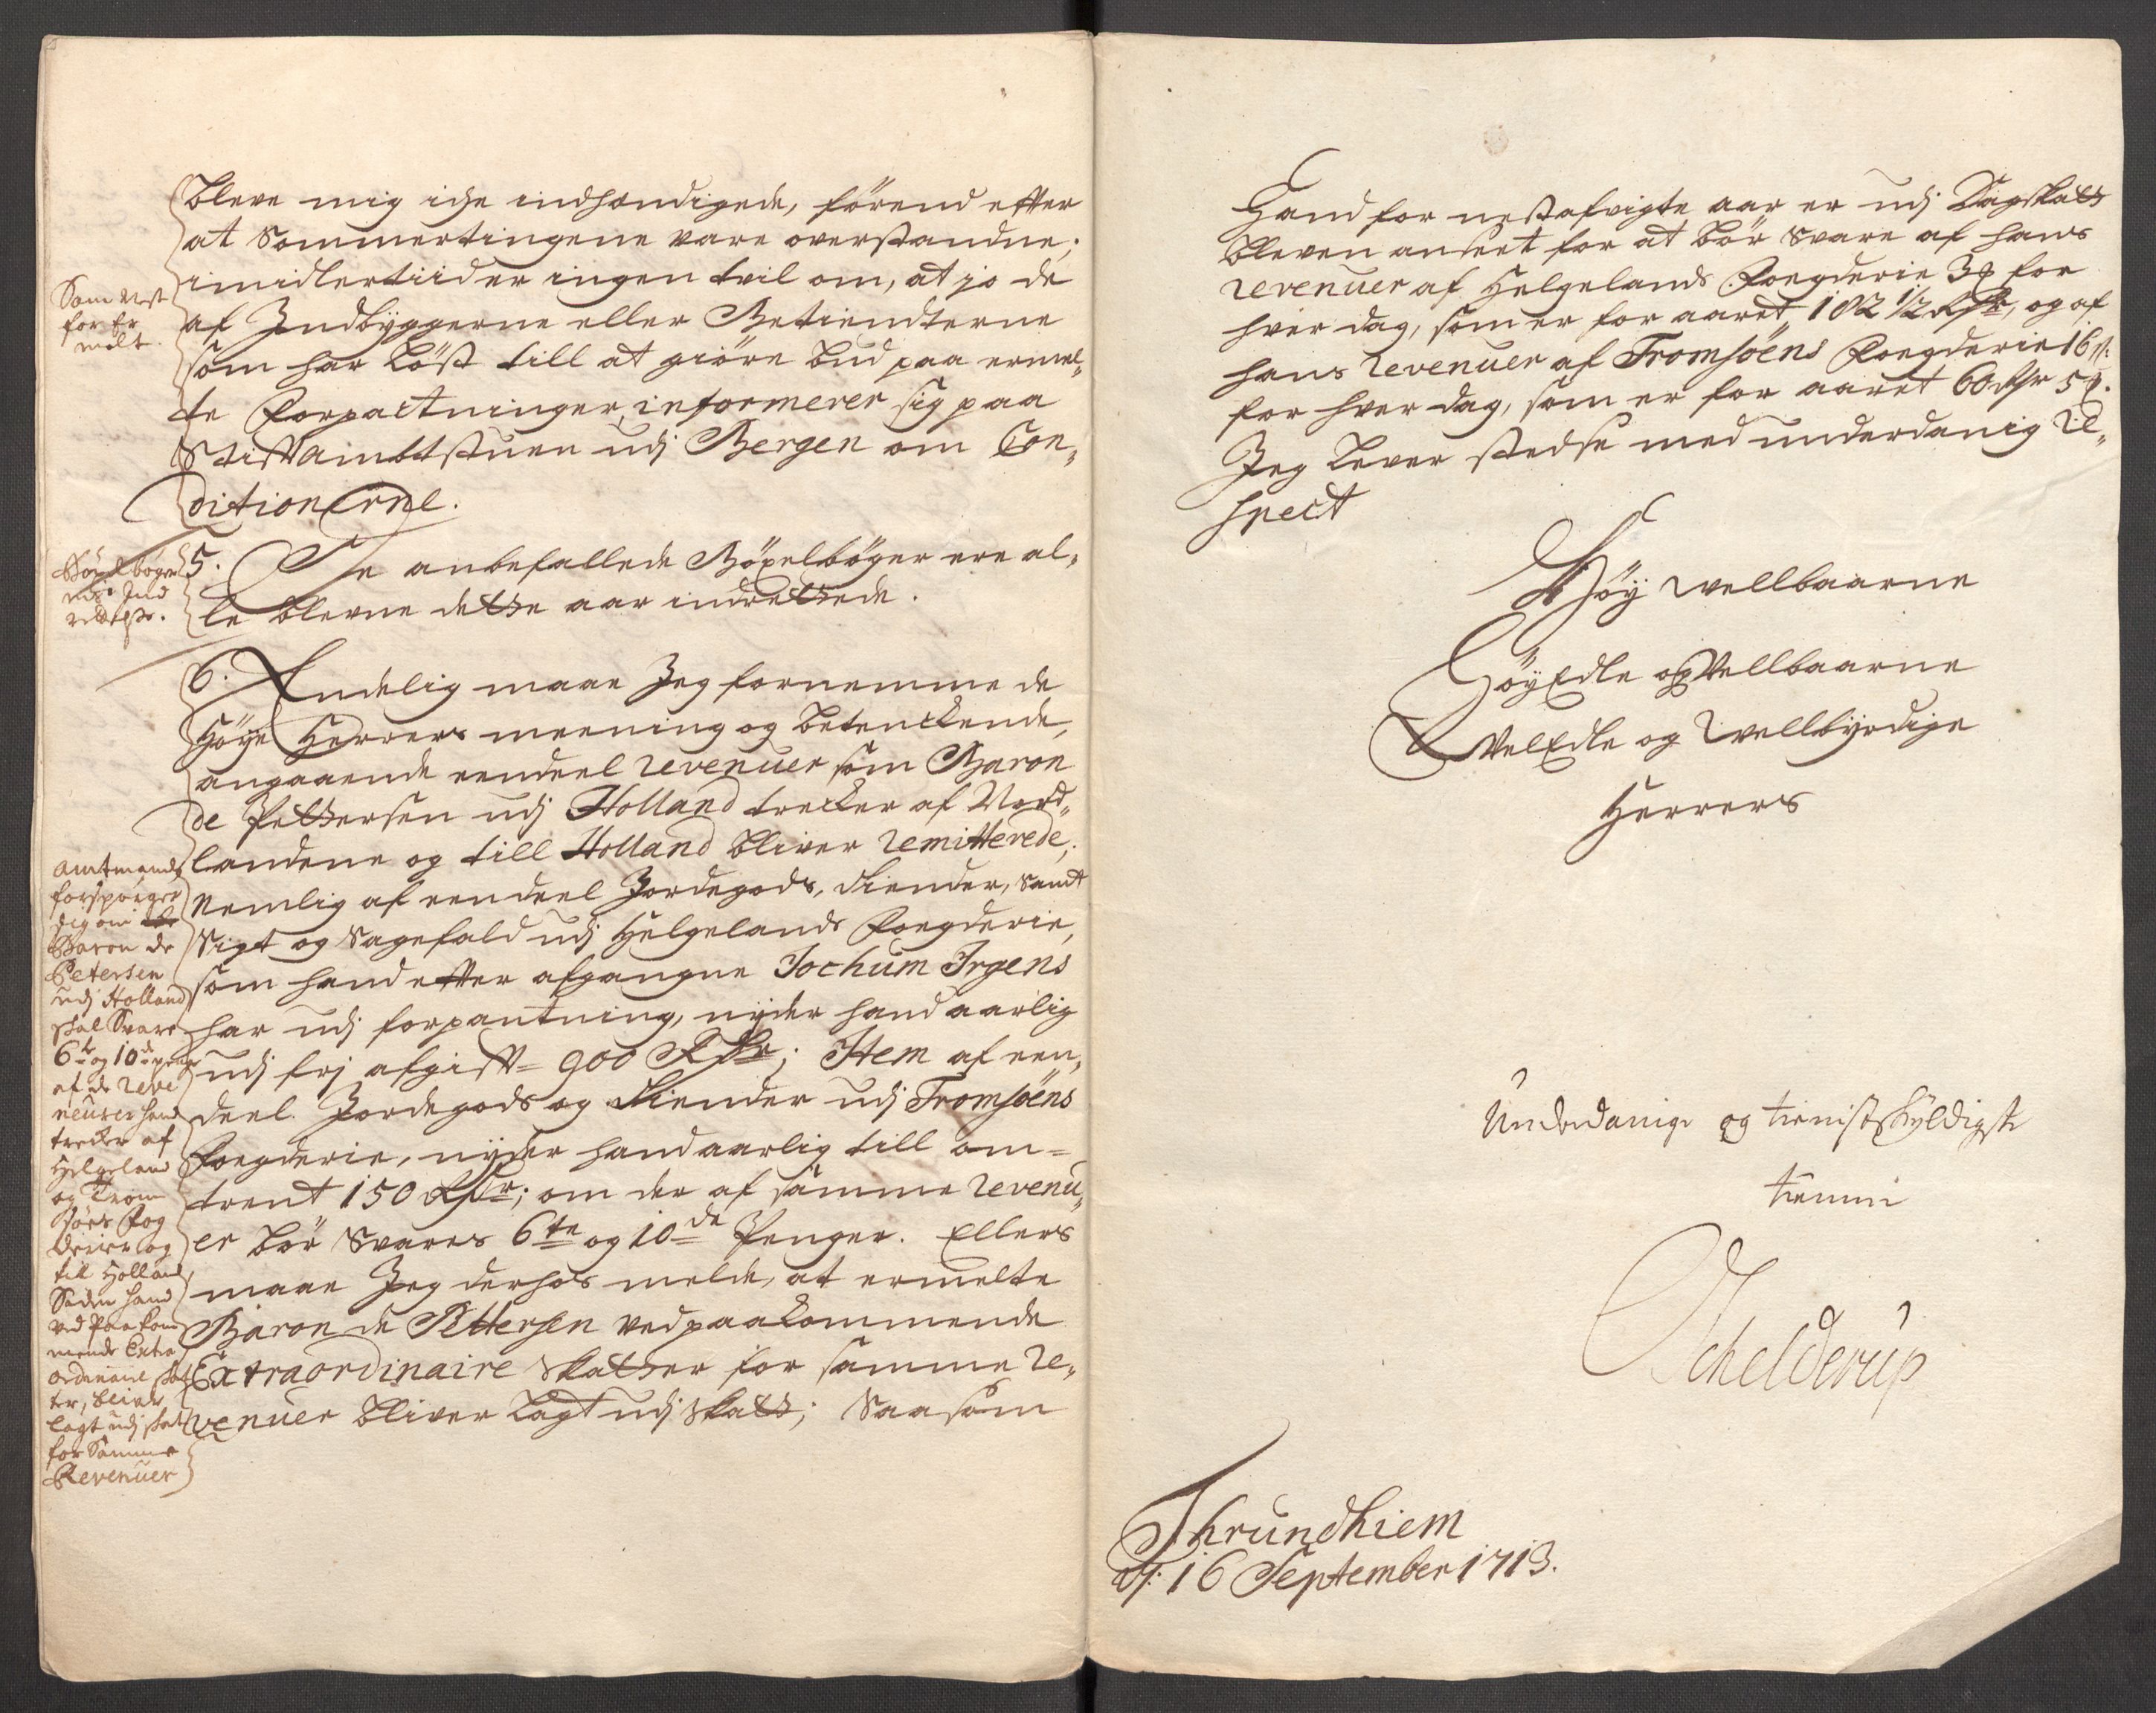 bleve mig icke indhændigede, förend efter
at Sommertingene vare overstandne;
imidlertiid er ingen tvil om, at jo de
af Indbÿggerne eller Betiendterne
som har Löst till at giöre bud paa ermel„
te Forpactninger, informerer sig paa
Stiftambtstuen udj Bergen om Con„
ditionerne.
Som Nest
for Er
melt.
5. De anbefallede Böxelböger ere al„
le blevne dette aar indrettede.
Böxelbøger
Ind
6. Endelig maae Jeg fornemme de
Höÿe Herrers meening og betenckende,
angaaende eendeel Revenuer som Baron
de Pettersen udj Holland trecker af Nord„
landene og till Holland bliver Remitterede;
Nemlig af eendeel Jordegods, tiender, samt
Sigt og Sagefald udj Helgelands Fogderie,
som hand efter afgangne Jochum Irgens
har udj forpantning, nÿder hand aarlig
udj frj afgift = 900 Rdr; Item af een„
deel Jordegods og tiender udj Tromsöens
Fogderie, nÿder hand aarlig till om=
trent 150 Rdr; om der af samme Revenu„
er bör Svares 6te og 10de Penger. Ellers
maae Jeg derhos melde, at ermelte
Baron de Pettersen ved paakommende
Extraordinaire Skatter for samme Re„
venuer bliver Lagt udj Skatt; Saasom
Amtmands
forspørger
sig om
Baron de
Petersen
udj Holland
skal Svare
6te og 10de penge
af de Reve
neuer hand
trecker af
Helgeland
og Trom
söes Fog
derier og
till Holland,
Siden hand
ved Paakom
mende Extra
ordinaire skat
ter, bliver
lagt udj skat
for Samme
Revenuer
Hand for nestafvigte aar er udj Dagskatt
bleven anseet for at bör svare af hans
Revenuer af Helgelands Fogderie 3 ß for
hver dag, som er for aaret 182 1/2 Rdr, og af
hans Revenuer af Tromsöens Fogderie 16 ß:
for hver dag, som er for aaret 60 Rdr 5 ß.
Jeg Lever stedse med underdanig Re„
spect
Höÿ Wellbaarne
HöÿEdle og Wellbaarne
VelEdle og Wellbÿrdige
Herrers
Underdanige og tienistskÿldigste
tienner
Schelderup
Thrundhiem
d: 16 September 1713.